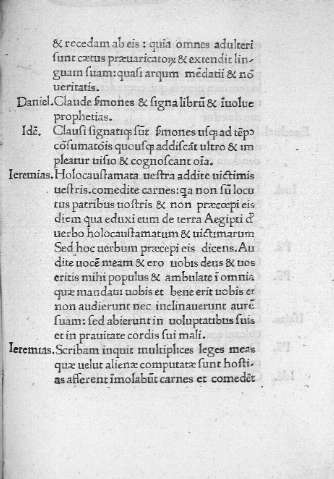 & recedam ab eis : quia omnes adulteri
sunt cætus præuaricatoꝝ & extendit lin-
guam suam: quasi arqum mēdatii & nō
ueritatis.
Daniel. Claude ſmones & signa librū & iuolue
prophetias.
Idē. Clausi signatiqȝ sūt ſmones usqȝ ad tēpꝰ
cōsumatōis quousqȝ addiscāt ultro & im
pleatur uisio & cognoscant oīa.
Ieremias. Holocaustamata uestra addite uictimis
uestris. comedite carnes: qa non sū locu
tus patribus uostris & non præcœpi eis
diem qua eduxi eum de terra Aegipti đ
uerbo holocaustamatum & uictimarum
Sed hoc uerbum præcepi eis dicens. Au
dite uocē meam & ero uobis deus & uos
eritis mihi populus & ambulate ī omnia
quæ mandaui uobis et bene erit uobis et
non audierunt nec inclinauerunt aurē
suam: sed abierunt in uoluptatibus suis
et in prauitate cordis sui mali.
Ieremias. Scribam inquit multiplices leges meas
quæ uelut alienæ computatæ sunt hosti-
as afferent īmolabūt carnes et comedēt